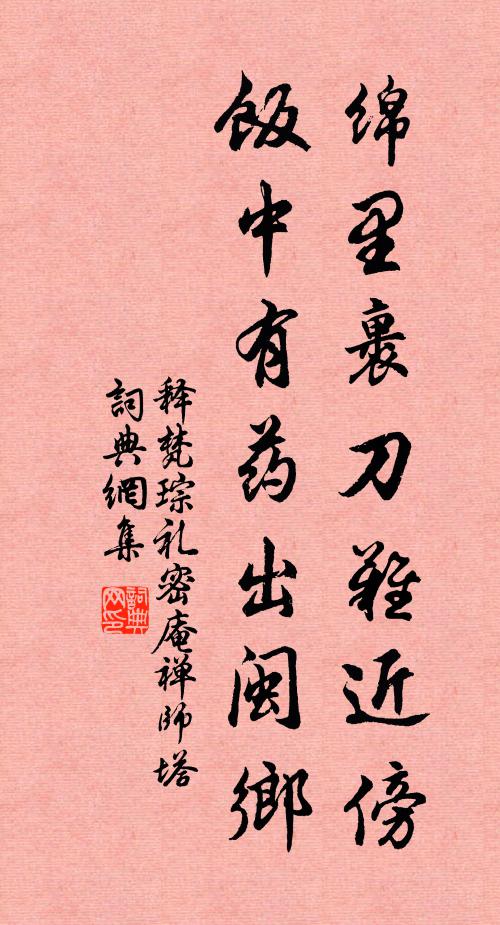 绵里裹刀难近傍
饭中有药出闽鄉
释梵琮礼密庵禅师塔
詞典網集
詞典网印